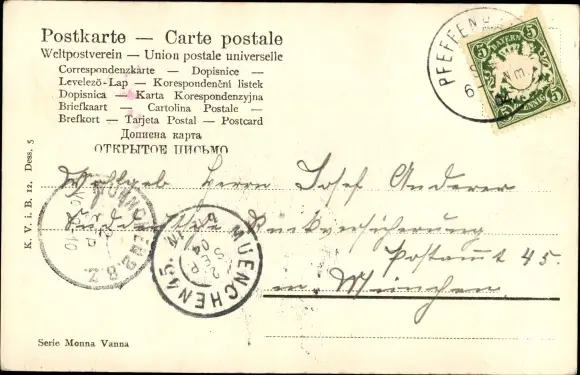 Postkarte — Carte postale
Weltpostverein — Union postale universelle
Correspondenzkarte — Dopisnice —
Levelező-Lap — Korespondenční listek
Dopisnica — Karta Korespondenzyjna
Briefkaart — Cartolina Postale —
Brefkort — Tarjeta Postal — Postcard
Дописна карта
ОТКРЫТОЕ ПИСЬМО
PFEFFEN
6 Nm.
5 BAYERN 5
5 PFENNIG 5
K. V. i. B. 12. Dess. 5
Wohlgeb Herrn Josef Anderer
Rückversicherung
Postamt 45.
in München
MUENCHEN 2 B.Z.
MUENCHEN 45
2 SEP 04
Serie Monna Vanna